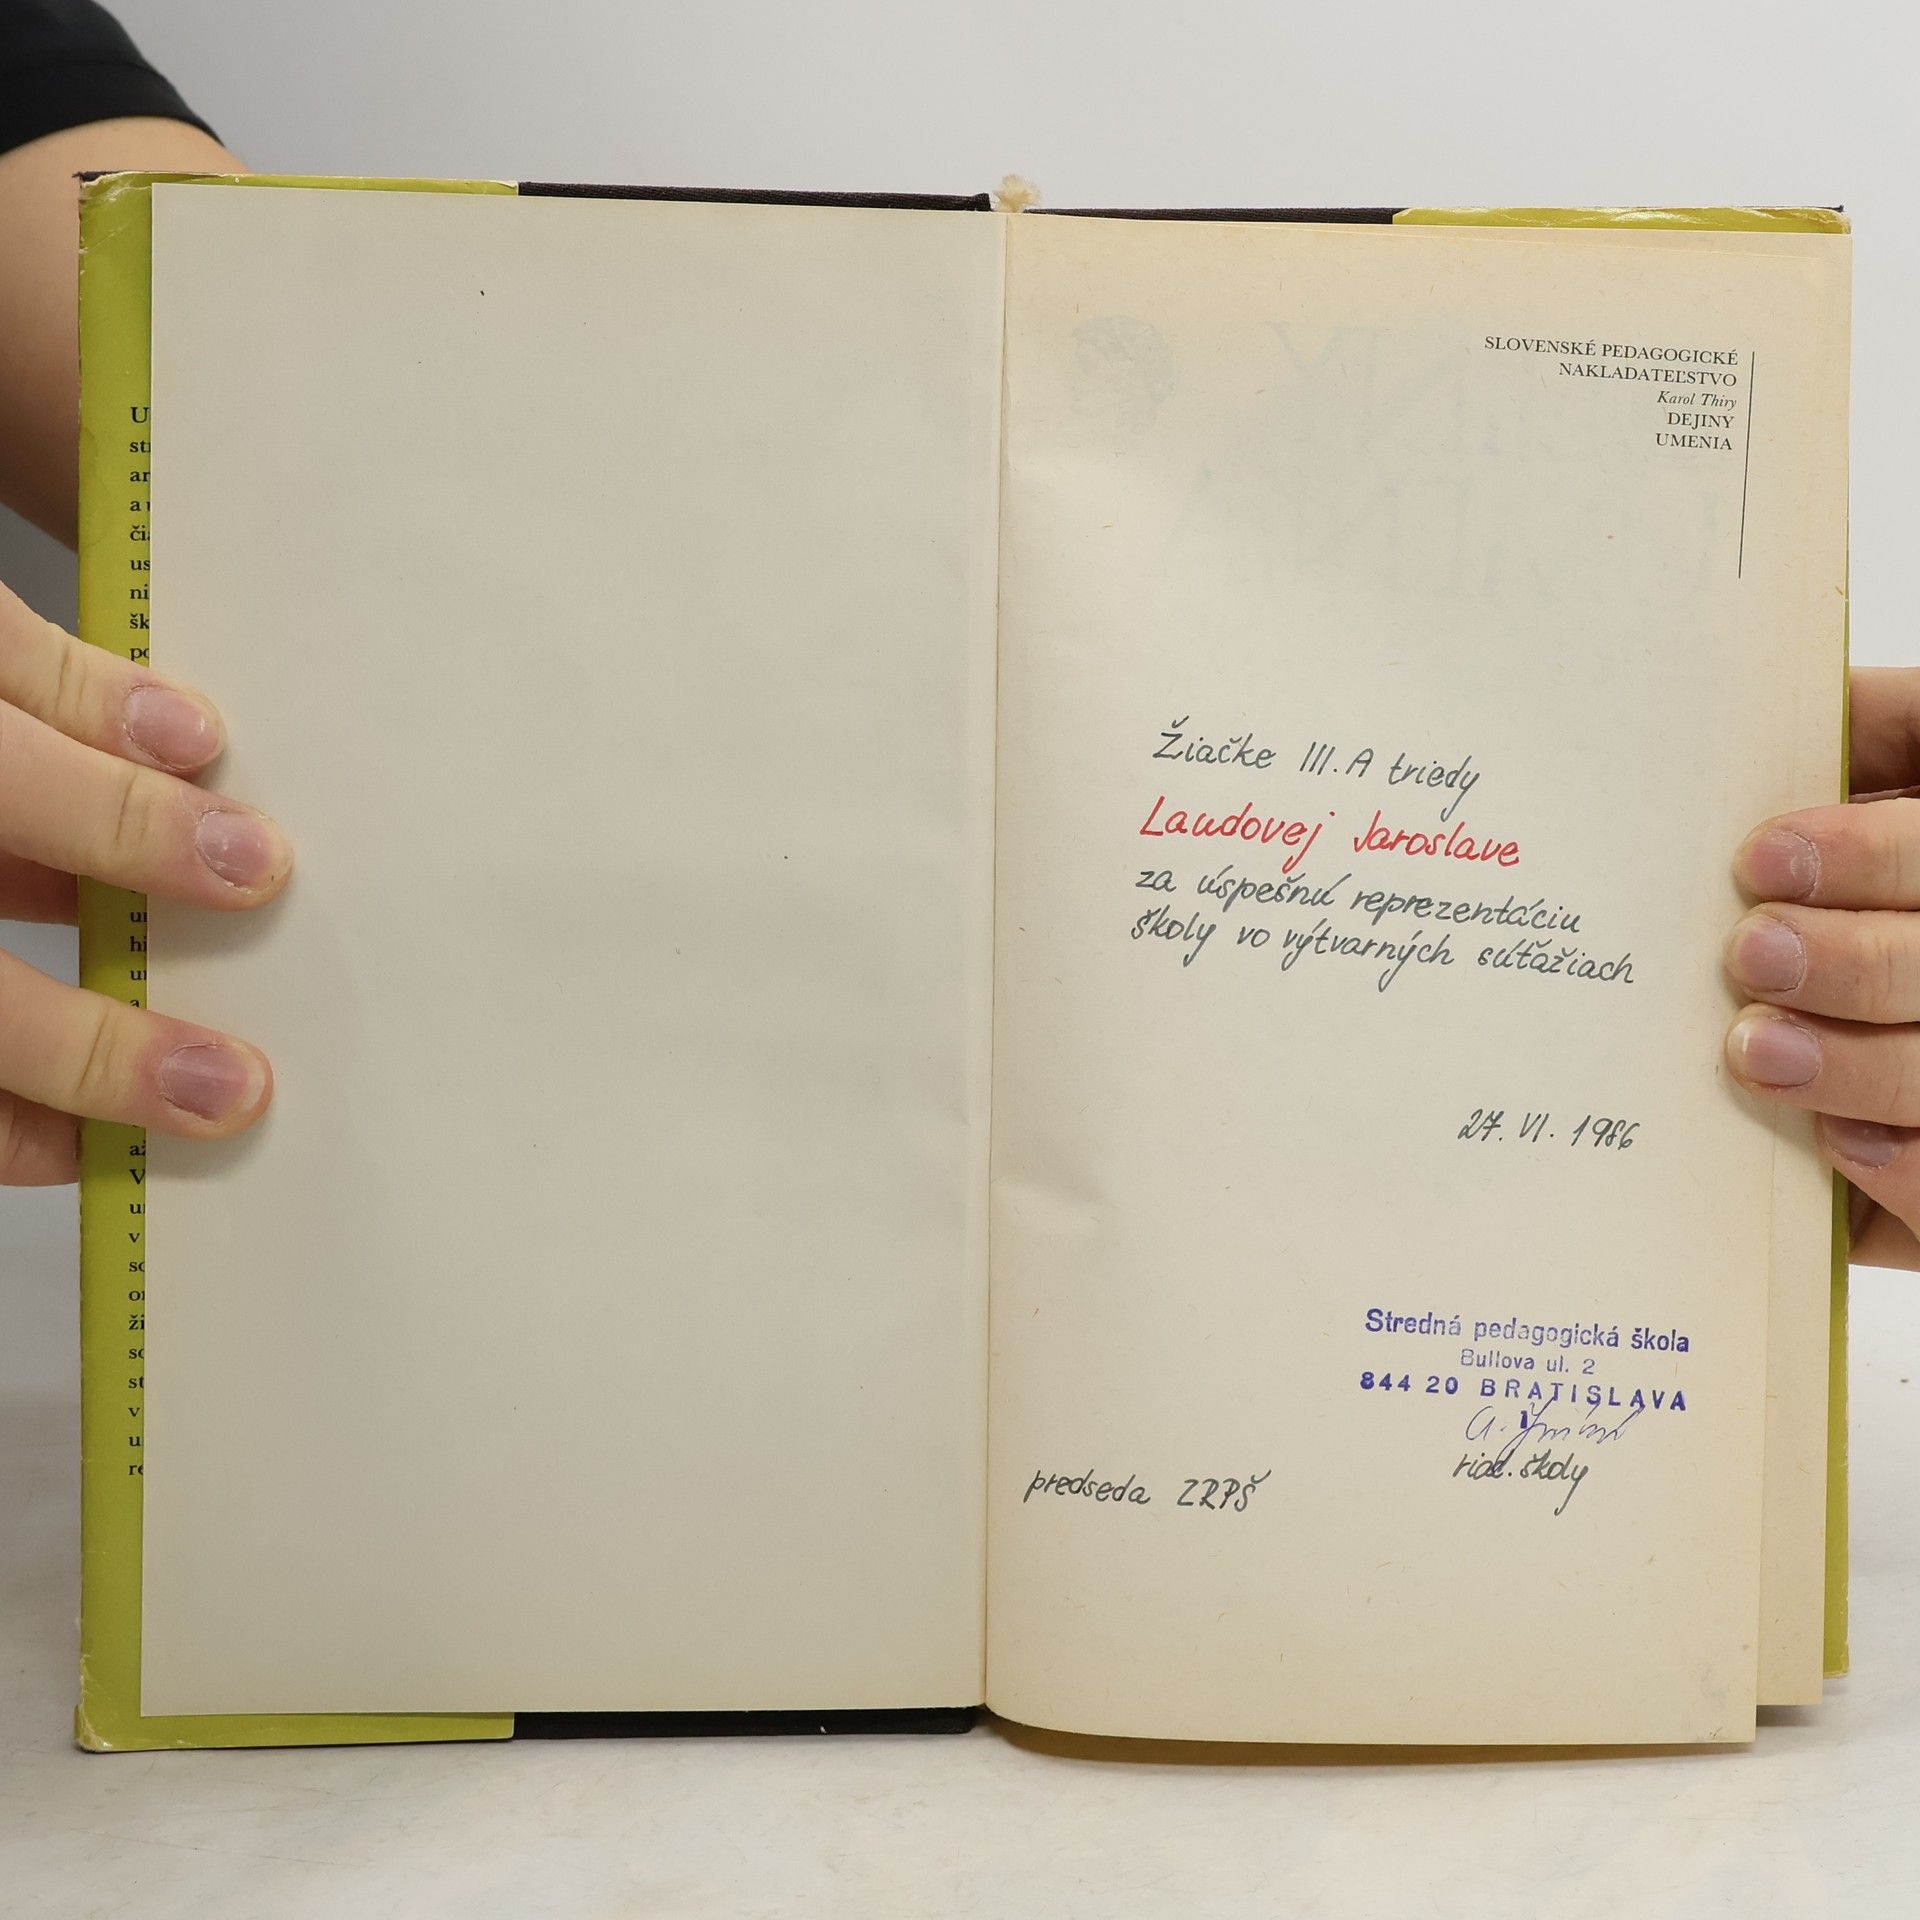 U
SLOVENSKÉ PEDAGOGICKÉ
NAKLADATEĽSTVO
Karol Thiry
DEJINY
UMENIA
Žiačke III. A triedy
Laudovej Jaroslave
za úspešnú reprezentáciu
školy vo výtvarných súťažiach
27. VI. 1986
Stredná pedagogická škola
Bullova ul. 2
844 20 BRATISLAVA
1
riad. školy
predseda ZRPŠ